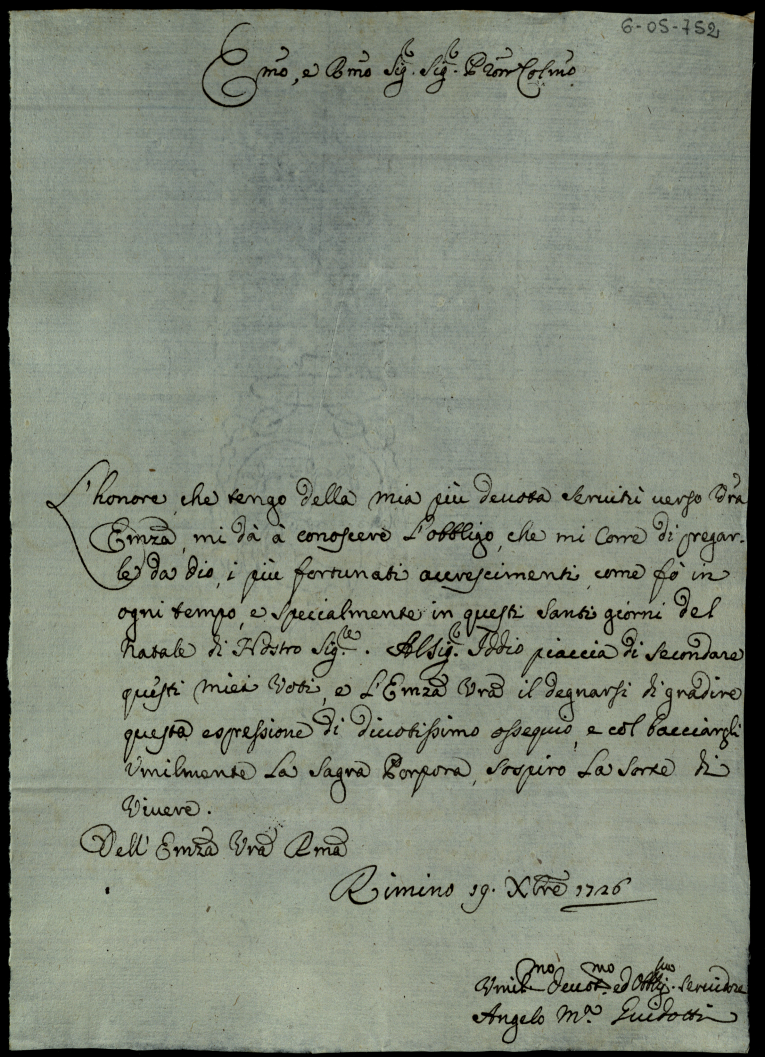 6-05-752
Emo, e Rmo Sig.r Sig.r Pron Colmo
L'honore, che tengo della mia più deuota seruitù uerso Vra
Emza, mi dà à conoscere l'obbligo, che mi corre di pregar-
le da dio, i più fortunati accrescimenti, come fò in
ogni tempo, e specialmente in questi santi giorni del
Natale di Nostro Sig.re. Al Sig.r Iddio piaccia di secondare
questi miei Voti, e l'Emza Vra il degnarsi di gradire
questa espressione di diuotissimo ossequio, e col bacciargli
Vmilmente la Sagra Porpora, sospiro la sorte di
Viuere.
Dell'Emza Vra Rma
Rimino 19. Xbre 1726
Vmil.mo deuot.mo ed Obblig.mo Seruidore
Angelo M.a Guidotti